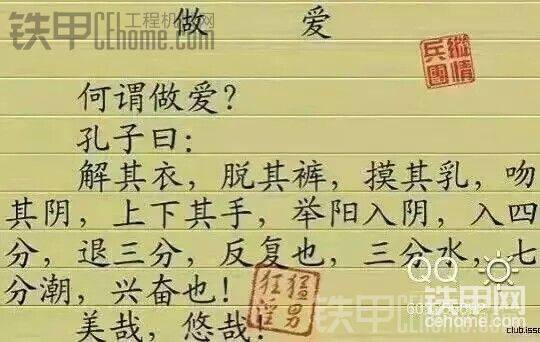 铁甲 工程机械网
cehome.com
做 爱
纵情
兵团
何谓做爱？
孔子曰：
解其衣，脱其裤，摸其乳，吻
其阴，上下其手，举阳入阴，入四
分，退三分，反复也，三分水，七
分潮，兴奋也！
美哉，悠哉！
猛男
狂淫
QQ
铁甲网
cehome.com
club.isso